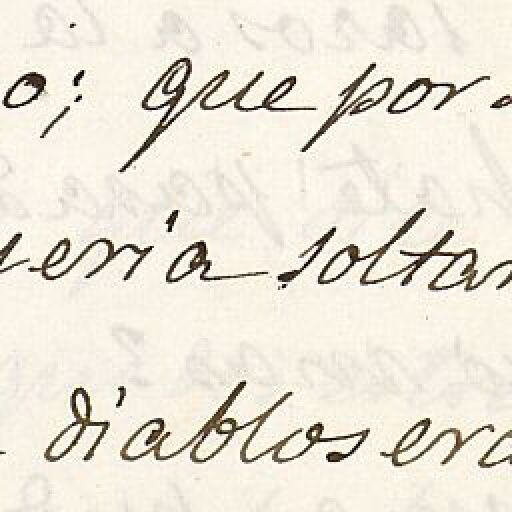 o; que por
uería soltar
diablos era